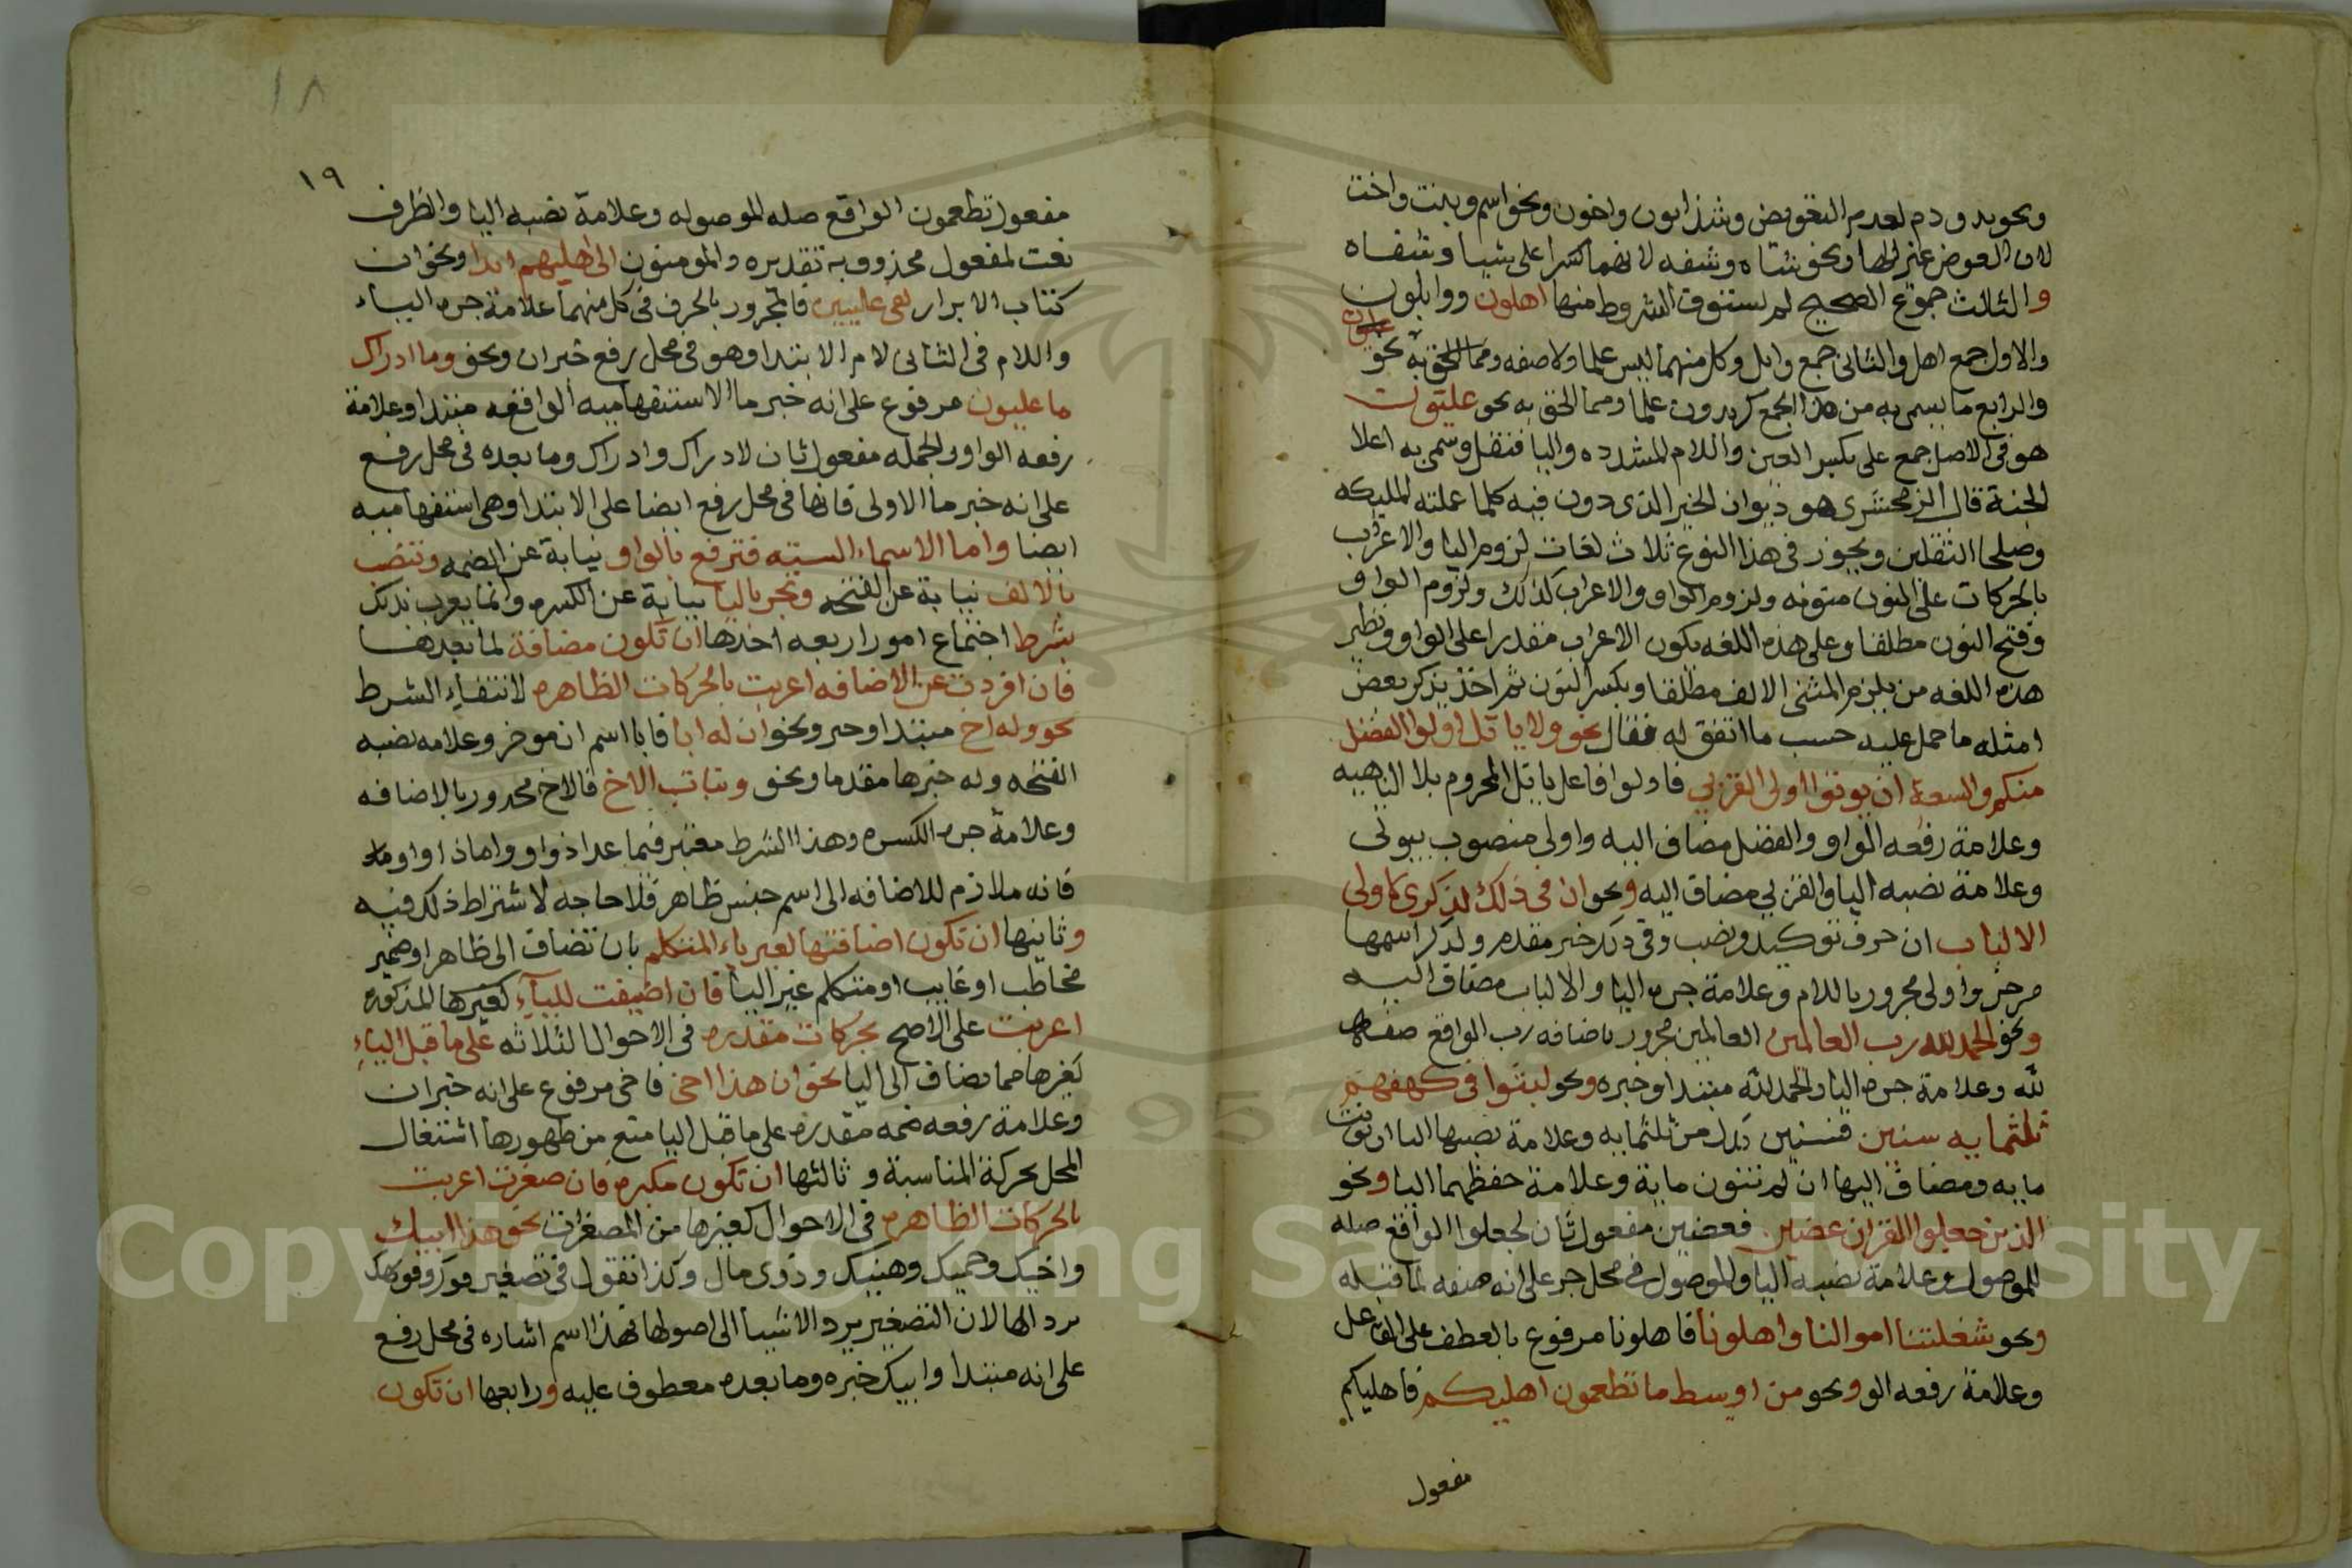 ونحو يد ودم لعدم التعويض وشذ ابون واخون ونحو اسم وبنت واخت
لان العوض غير الها ونحو شاه وشفه لانهما كسرا على شيا وشفاه
والثالث جموع تصحيح لم تستوف الشروط منها اهلون ووابلون
والاول جمع اهل والثاني جمع وابل وكل منهما ليس علما ولا صفه ومما الحق به نحو
عليون
والرابع ما يسمى به من هذا الجمع كزيدون علما ومما الحق به نحو عليون
هو في الاصل جمع على بكسر العين واللام المشدده واليا فنقل وسمي به اعلا
الجنة قال الزمخشرى هو ديوان الخير الذى دون فيه كلما عملته المليكه
وصلحا الثقلين ويجوز في هذا النوع ثلاث لغات لزوم اليا والاعراب
بالحركات على النون منونه ولزوم الواو والاعراب كذلك ولزوم الواو
وفتح النون مطلقا وعلى هذه اللغه يكون الاعراب مقدرا على الواو ونظير
هذه اللغه من يلزم المثنى الالف مطلقا ويكسر النون ثم اخذ يذكر بعض
امثله ما حمل عليه حسب ما اتفق له فقال نحو ولا ياتل اولوا الفضل
منكم والسعة ان يوتوا اولى القربي فاولوا فاعل ياتل المجزوم بلا الناهيه
وعلامة رفعه الواو والفضل مضاف اليه واولى منصوب بيوتى
وعلامة نصبه اليا والقربي مضاف اليه ونحو ان في ذلك لذكرى لاولى
الالباب ان حرف توكيد ونصب وفي ذلك خبر مقدم ولذكرا اسمها
مرخر واولى مجرور باللام وعلامة جره اليا والالباب مضاف اليه
ونحو الحمد لله رب العالمين العالمين مجرور باضافه رب الواقع صفه
لله وعلامة جره اليا والحمد لله مبتدا وخبره ونحو لبثوا في كهفهم
ثلثمايه سنين فسنين بدل من ثلثمايه وعلامة نصبها اليا ان نونت
مايه ومضاف اليها ان لم تنون ماية وعلامة حفظهما اليا ونحو
الذين جعلوا القران عضين فعضين مفعول ثان لجعلوا الواقع صله
الموصول وعلامة نصبه اليا والموصول في محل جر على انه صفه لما قبله
ونحو شغلتنا اموالنا واهلونا فاهلونا مرفوع بالعطف على الفاعل
وعلامة رفعه الو ونحو من اوسط ما تطعمون اهليكم فاهليكم
مفعول
١٨
١٩
مفعول تطعمون الواقع صله الموصوله وعلامة نصبه اليا والظرف
نعت لمفعول محذوف به تقديره والمومنون الى اهليهم ابدا ونحو ان
كتاب الابرار لفي عليين فالمجرور بالحرف في كل منهما علامة جره الياء
واللام في الثانى لام الابتدا وهو في محل رفع خبر ان ونحو وما ادراك
ما عليون مرفوع على انه خبر ما الاستفهاميه الواقعه مبتدا وعلامة
رفعه الواو والجمله مفعول ثان لادراك وادراك وما بعده في محل رفع
على انه خبر ما الاولى فانها في محل رفع ايضا على الابتدا وهي استفهاميه
ايضا واما الاسماء السته فترفع بالواو نيابة عن الضمه وتنصب
بالالف نيابة عن الفتحه وتجر باليا نيابة عن الكسره وانما يعرب بذلك
بشرط اجتماع امور اربعه احدها ان تكون مضافة لما بعدها
فان افردت عن الاضافه اعربت بالحركات الظاهره لانتفاء الشرط
نحو وله اخ مبتدا وخبر ونحو ان له ابا فابا اسم ان موخر وعلامه نصبه
الفتحه وله خبرها مقدما ونحو وبنات الاخ فالاخ مجرور بالاضافه
وعلامة جره الكسره وهذا الشرط معتبر فيما عدا ذو واو واما ذو او وما
فانه ملازم للاضافه الى اسم جنس ظاهر فلا حاجه لاشتراط ذلك فيه
وثانيها ان تكون اضافتها لغير ياء المتكلم بان تضاف الى ظاهر او ضمير
مخاطب او غايب او متكلم غير اليا فان اضيفت للياء كغيرها المذكوره
اعربت على الاصح بحركات مقدره في الاحوال الثلاثه على ما قبل الياء
كغيرها مما يضاف الى اليا نحو ان هذا اخي فاخي مرفوع على انه خبر ان
وعلامة رفعه ضمه مقدره على ما قبل اليا منع من ظهورها اشتغال
المحل بحركة المناسبة و ثالثها ان تكون مكبره فان صغرت اعربت
بالحركات الظاهره في الاحوال كغيرها من المصغرات نحو هذا ابيك
واخيك وحميك وهنيك وذوى مال وكذا تقول في تصغير فوك فويهك
برد الها لان التصغير يرد الاشيا الى اصولها فهذا اسم اشاره في محل رفع
على انه مبتدا وابيك خبره وما بعده معطوف عليه ورابعها ان تكون
Copyright © King Saud University
1957